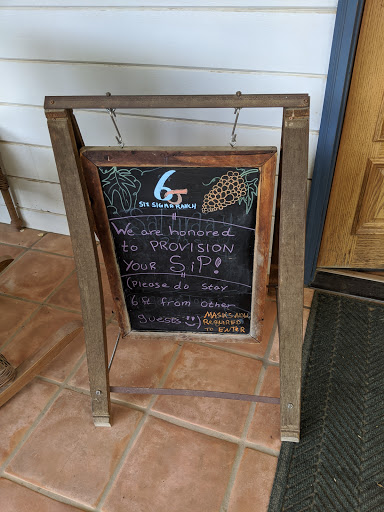 6σ
SIX SIGMA RANCH
We are honored
to PROVISION
YOUR SiP!
(Please do stay
6 ft from other
guests :))
MASKS NOW
REQUIRED
TO ENTER